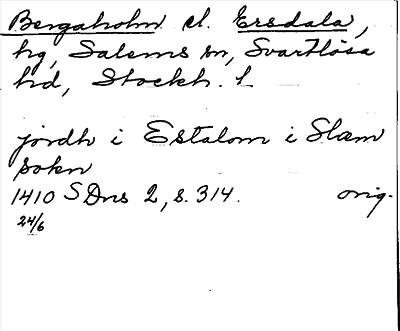 Bergaholm el. Ersdala,
hg, Salems sn, Svartlösa
hd, Stockh. l
jordh i Estalom i Slæm
sokn
1410 SDns 2, s. 314. orig.
24/6